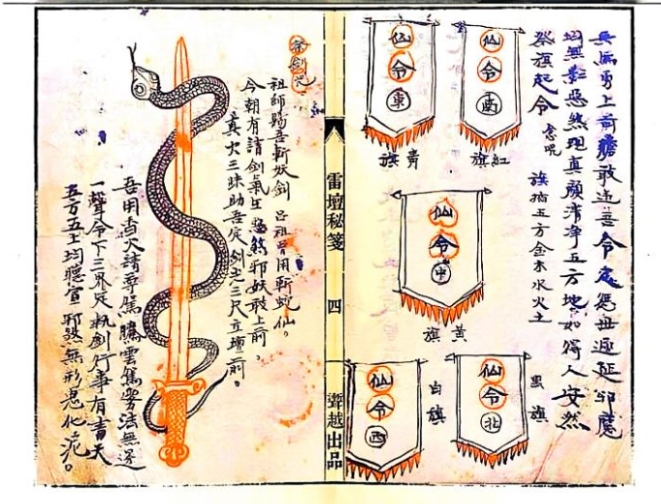 兵馬勇上前膽敢違吾令處 世 延邪魔
均無影惡煞現真顏清淨五方地如得人安然
祭旗起令 念咒 旗指五方金木水火土
仙令南
紅旗
仙令東
青旗
仙令中
黃旗
仙令北
黑旗
仙令西
白旗
雷壇秘箋 四 越出品
祭劍咒
祖師賜吾斬妖劍 呂祖曾用斬蛇仙。
今朝有請劍氣 煞邪妖敢上前。
真火三珠助吾 劍土三尺立壇前。
吾用真火請尊駕騰雲駕雾法無邊
一聲令下三界定執劍行事有青天
五方五土均聽宣邪煞無形鬼化泥。